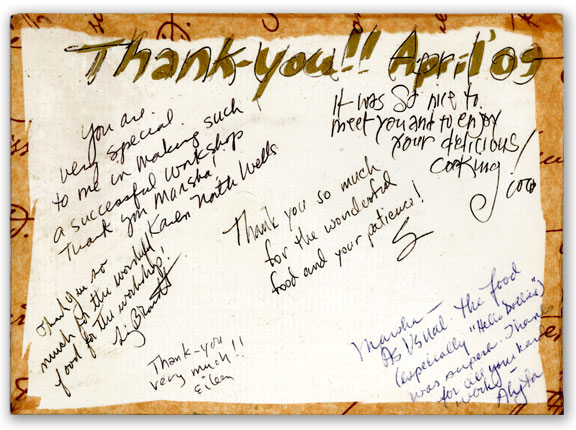 Thank-you!! April '09
You are
very special
to me in making such
a successful workshop
Thank you Marsha!
Karen North Wells
It was so nice to
meet you and to enjoy
your delicious
cooking!
coco
Thank you so much
for the wonderful
food and your patience!
Thank you so
much for the wonderful
food for the workshop!
Thank-you
very much!!
Eileen
Marsha -
As Usual - the food
(especially "Hello Dollies")
was superb. Thanks
for all your hard
work -